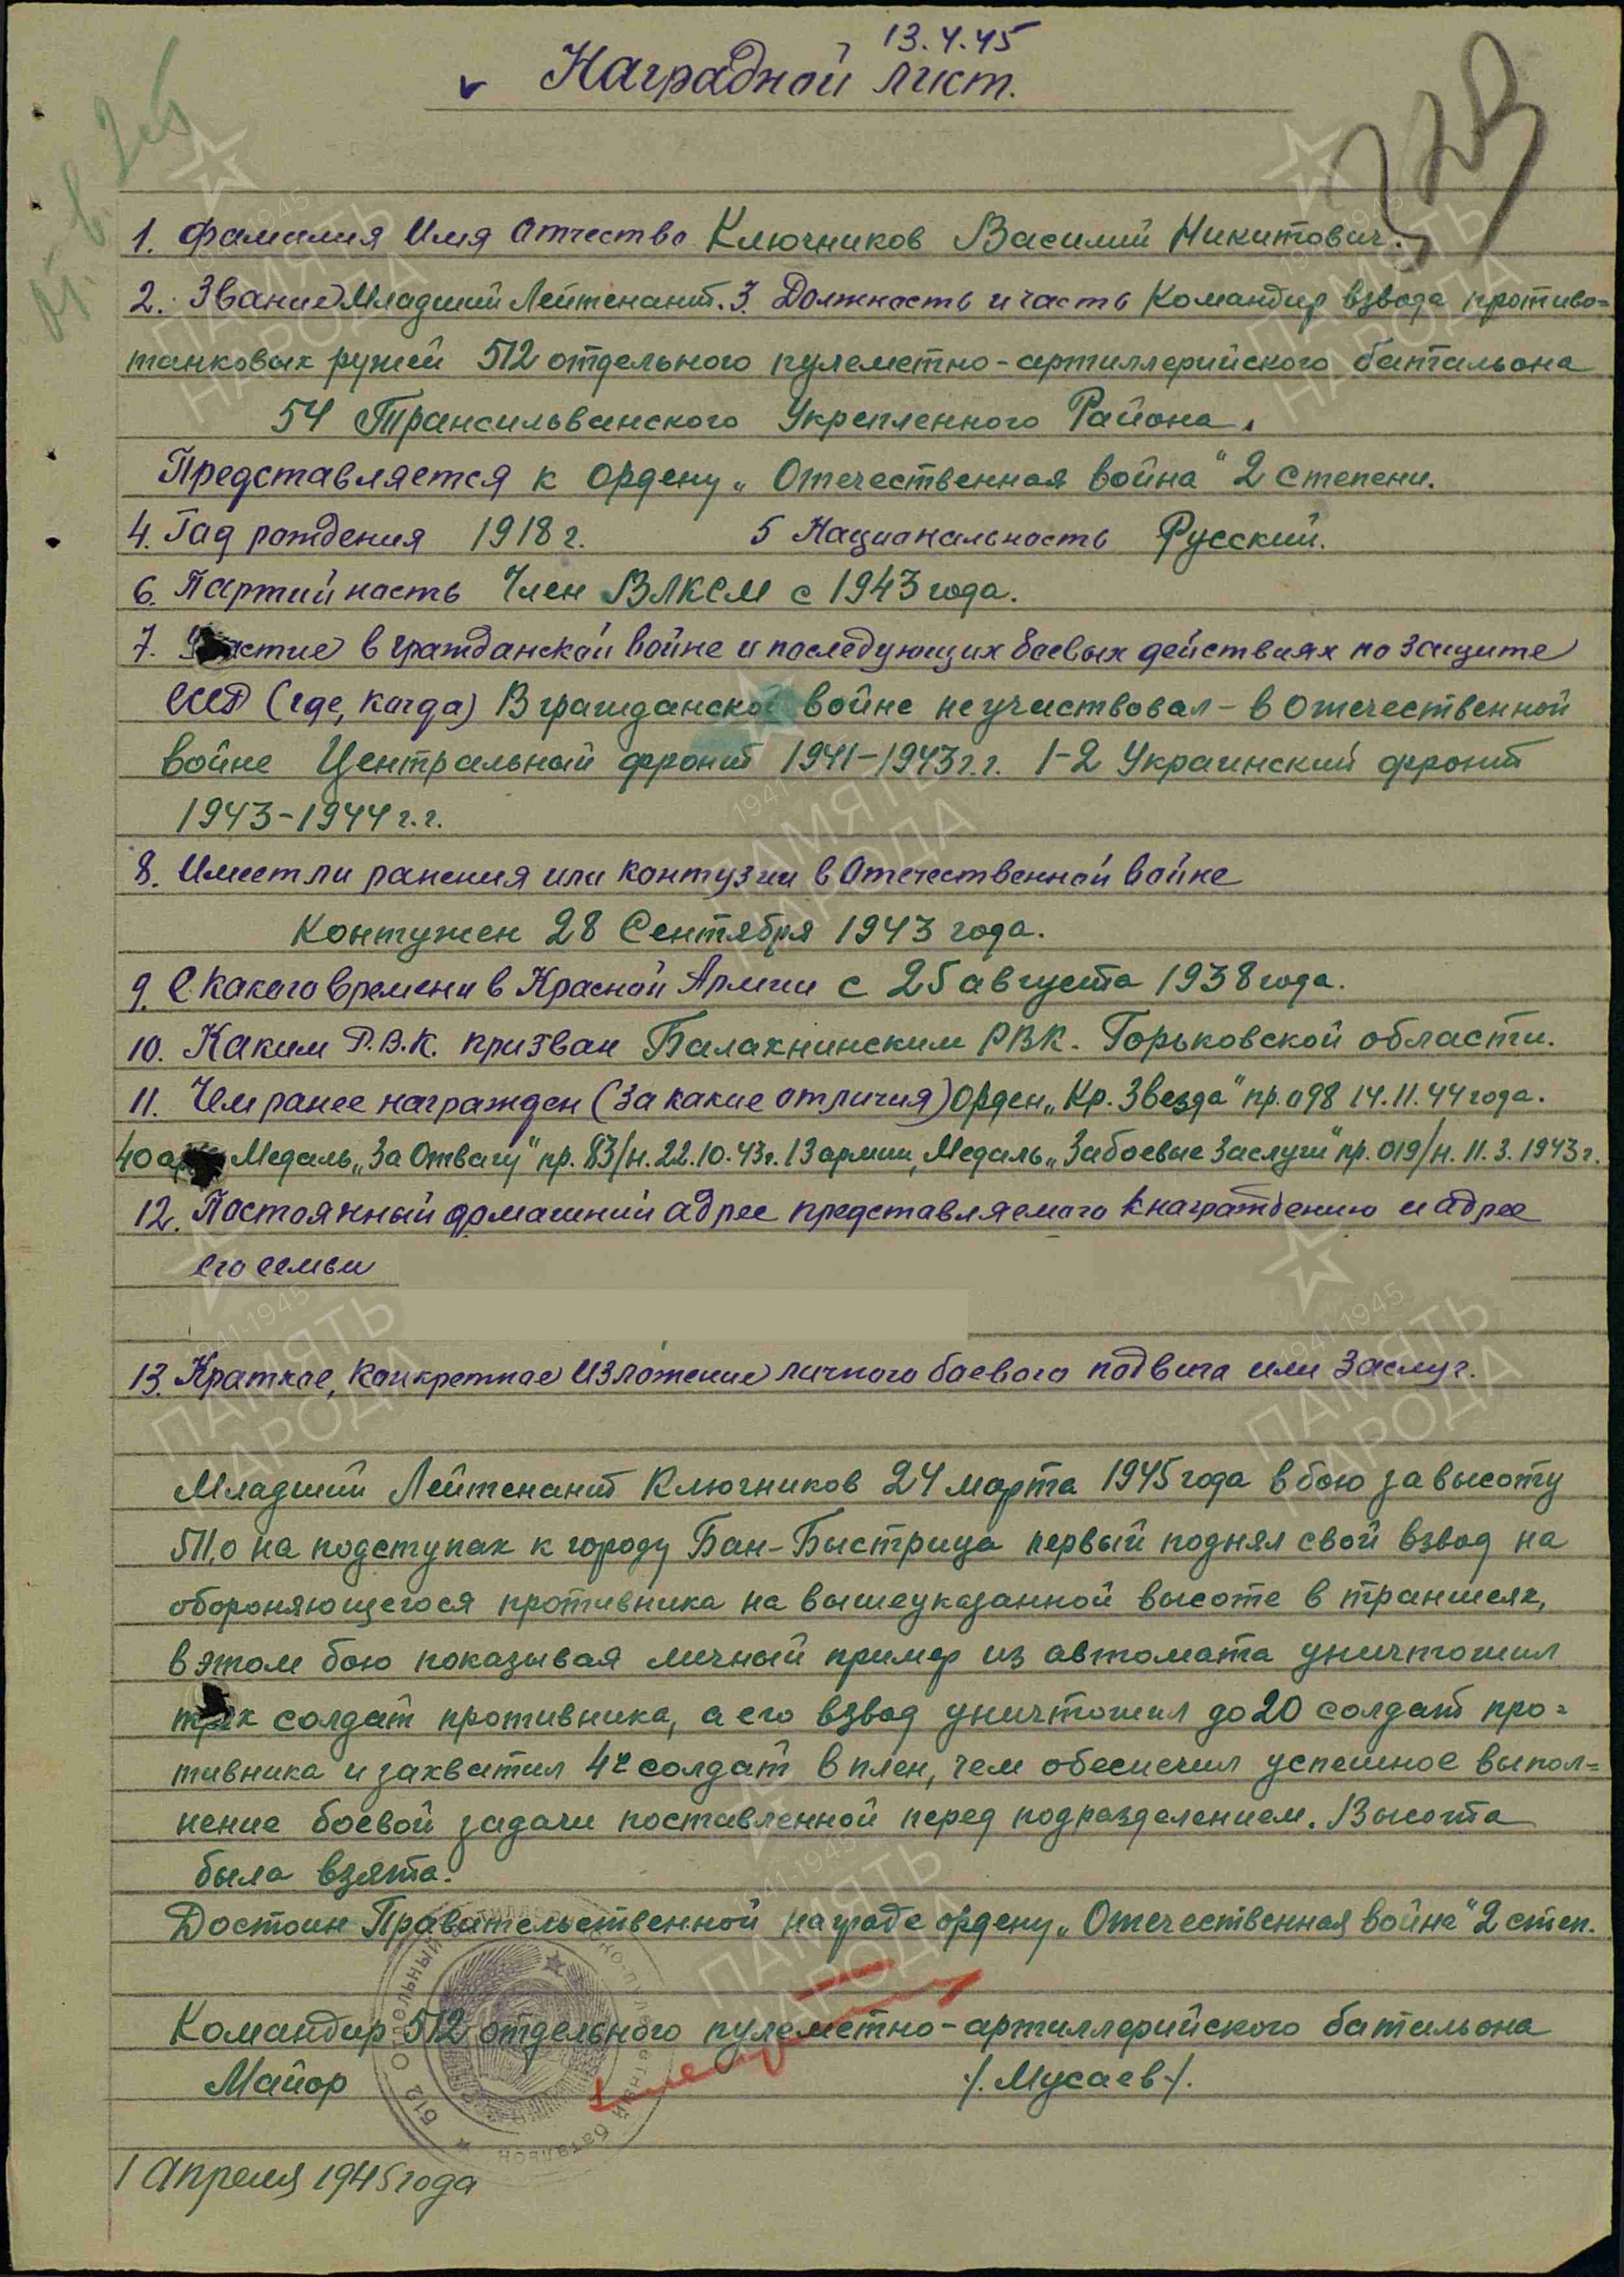 13.4.45
Наградной лист.
1. Фамилия Имя Отчество Ключников Василий Никитович.
2. Звание Младший Лейтенант. 3. Должность и часть Командир взвода противо=
танковых ружей 512 отдельного пулеметно-артиллерийского батальона
54 Трансильванского Укрепленного Района.
Представляется к ордену „Отечественная война" 2 степени.
4. Год рождения 1918 г. 5 Национальность Русский.
6. Партийность Член ВЛКСМ с 1943 года.
7. Участие в гражданской войне и последующих боевых действиях по защите
СССР (где, когда) В гражданской войне не участвовал - в Отечественной
войне Центральный фронт 1941-1943 г.г. 1-2 Украинский фронт
1943-1944 г.г.
8. Имеет ли ранения или контузии в Отечественной войне
Контужен 28 Сентября 1943 года.
9. С какого времени в Красной Армии с 25 августа 1938 года.
10. Каким Р.В.К. призван Балахнинским РВК. Горьковской области.
11. Чем ранее награжден (за какие отличия) Орден „Кр. Звезда" пр. 098 14.11.44 года.
40 Медаль „За Отвагу" пр. 83/н. 22.10.43г. 13 армии, Медаль „За боевые Заслуги" пр. 019/н. 11.3.1943 г.
12. Постоянный домашний адрес представляемого к награждению и адрес
его семьи
13. Краткое, конкретное изложение личного боевого подвига или заслуг.
Младший Лейтенант Ключников 24 марта 1945 года в бою за высоту
511,0 на подступах к городу Бан-Быстрица первый поднял свой взвод на
обороняющегося противника на вышеуказанной высоте в траншеях,
в этом бою показывая личный пример из автомата уничтожил
трех солдат противника, а его взвод уничтожил до 20 солдат про=
тивника и захватил 4х солдат в плен, чем обеспечил успешное выпол=
нение боевой задачи поставленной перед подразделением. Высота
была взята.
Достоин Правительственной награде ордену „Отечественная война" 2 степ.
Командир 512 отдельного пулеметно-артиллерийского батальона
Майор /. Мусаев /.
1 Апреля 1945 года
ПАМЯТЬ НАРОДА
1941-1945